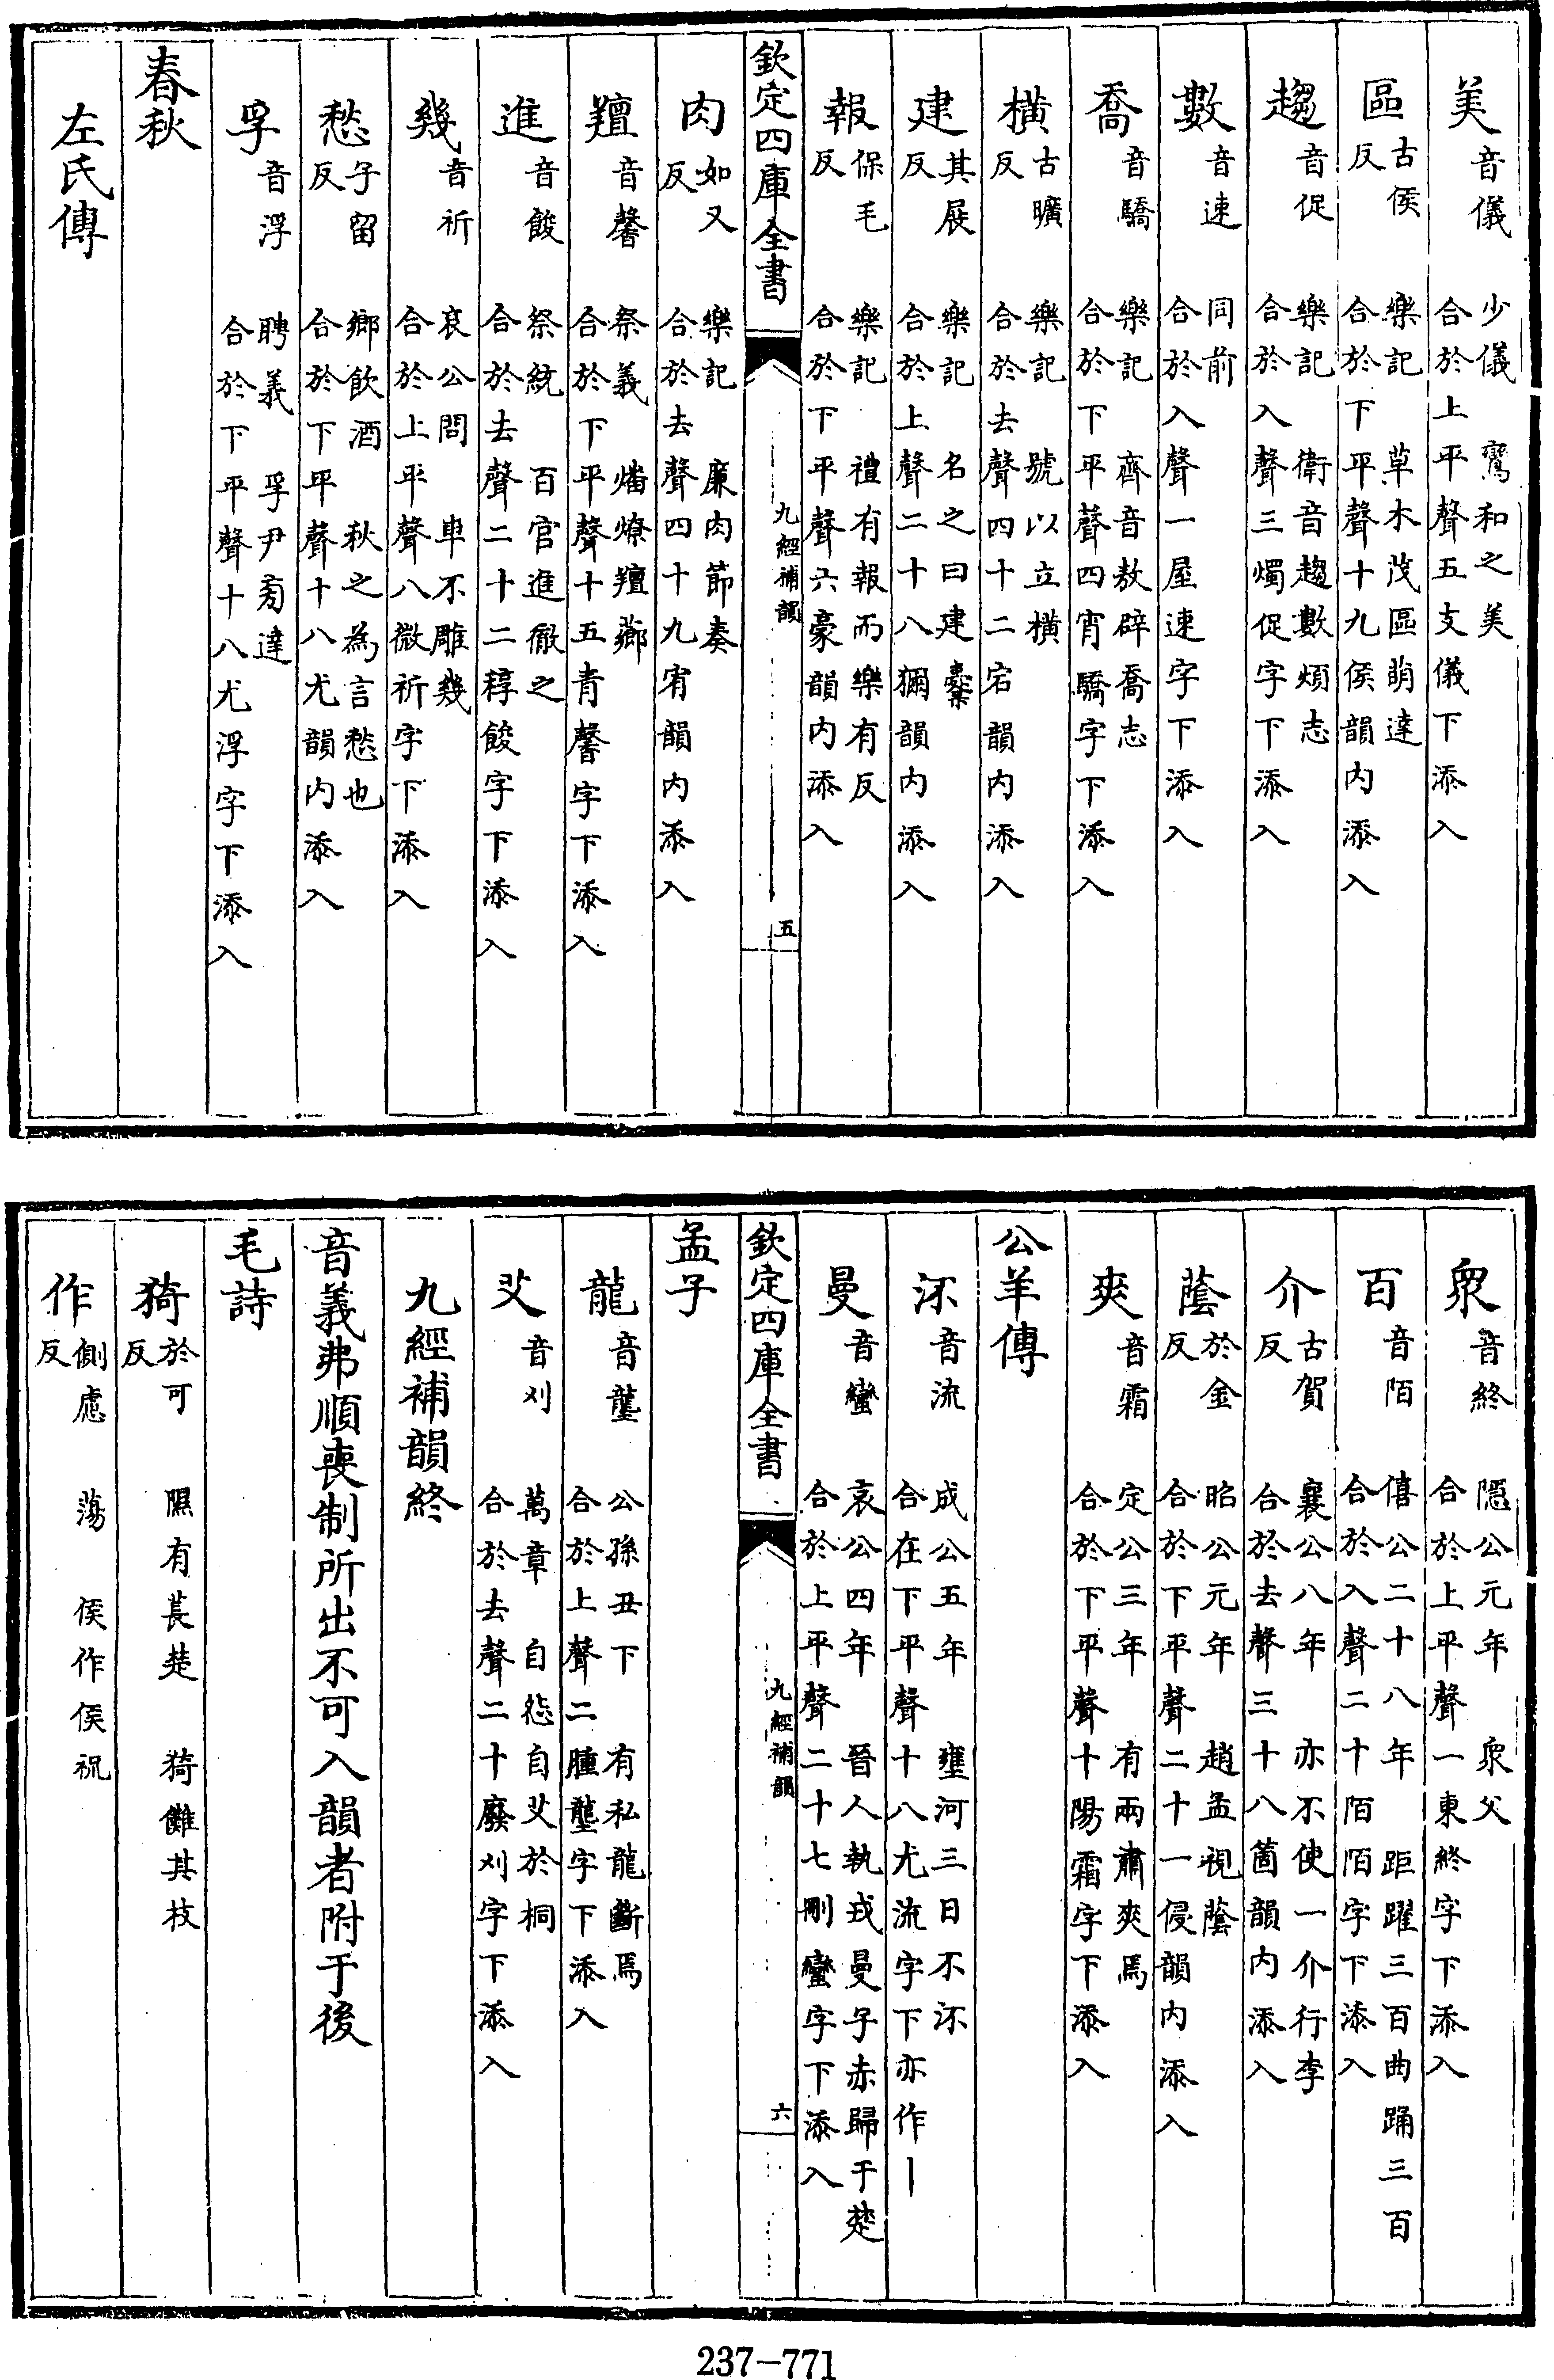 美音儀　少儀　鸞和之美　合於上平聲五支儀下添入
區古侯反　樂記　草木茂區萌達　合於下平聲十九侯韻内添入
趨音促　樂記　衛音趨數煩志　合於入聲三燭促字下添入
數音速　同前　合於入聲一屋速字下添入
喬音驕　樂記　齊音敖辟喬志　合於下平聲四宵驕字下添入
橫古曠反　樂記　號以立橫　合於去聲四十二宕韻内添入
建其展反　樂記　名之曰建櫜　合於上聲二十八獮韻内添入
報保毛反　樂記　禮有報而樂有反　合於下平聲六豪韻内添入
欽定四庫全書　九經補韻　五
肉如又反　樂記　廉肉節奏　合於去聲四十九宥韻内添入
羶音馨　祭義　燔燎羶薌　合於下平聲十五青馨字下添入
進音餕　祭統　百官進徹之　合於去聲二十二稕餕字下添入
幾音祈　哀公問　車不雕幾　合於上平聲八微祈字下添入
愁子留反　鄉飲酒　秋之為言愁也　合於下平聲十八尤韻内添入
孚音浮　聘義　孚尹㫄達　合於下平聲十八尤浮字下添入
春秋
左氏傳
衆音終　隱公元年　衆父　合於上平聲一東終字下添入
百音陌　僖公二十八年　距躍三百曲踊三百　合於入聲二十陌陌字下添入
介古賀反　襄公八年　亦不使一介行李　合於去聲三十八箇韻内添入
蔭於金反　昭公元年　趙孟視蔭　合於下平聲二十一侵韻内添入
爽音霜　定公三年　有兩肅爽馬　合於下平聲十陽霜字下添入
公羊傳
沠音流　成公五年　壅河三日不沠　合在下平聲十八尤流字下亦作｜
曼音蠻　哀公四年　晉人執戎曼子赤歸于楚　合於上平聲二十七刪蠻字下添入
欽定四庫全書　九經補韻　六
孟子
龍音壟　公孫丑下　有私龍斷焉　合於上聲二腫壟字下添入
艾音刈　萬章　自怨自艾於桐　合於去聲二十廢刈字下添入
九經補韻終
音義弗順喪制所出不可入韻者附于後
毛詩
猗於可反　隰有萇楚　猗儺其枝
作側慮反　蕩　侯作侯祝
237-771